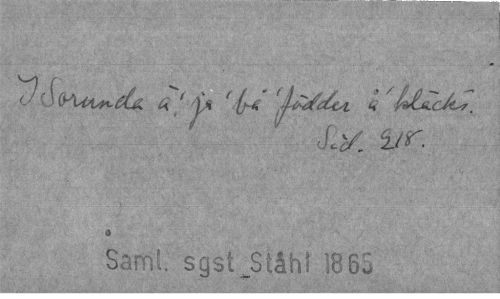 I Sorunda ä' ja' bå' födder å' kläckt.
Sid. 218.
Saml. sgst Ståhl 1865